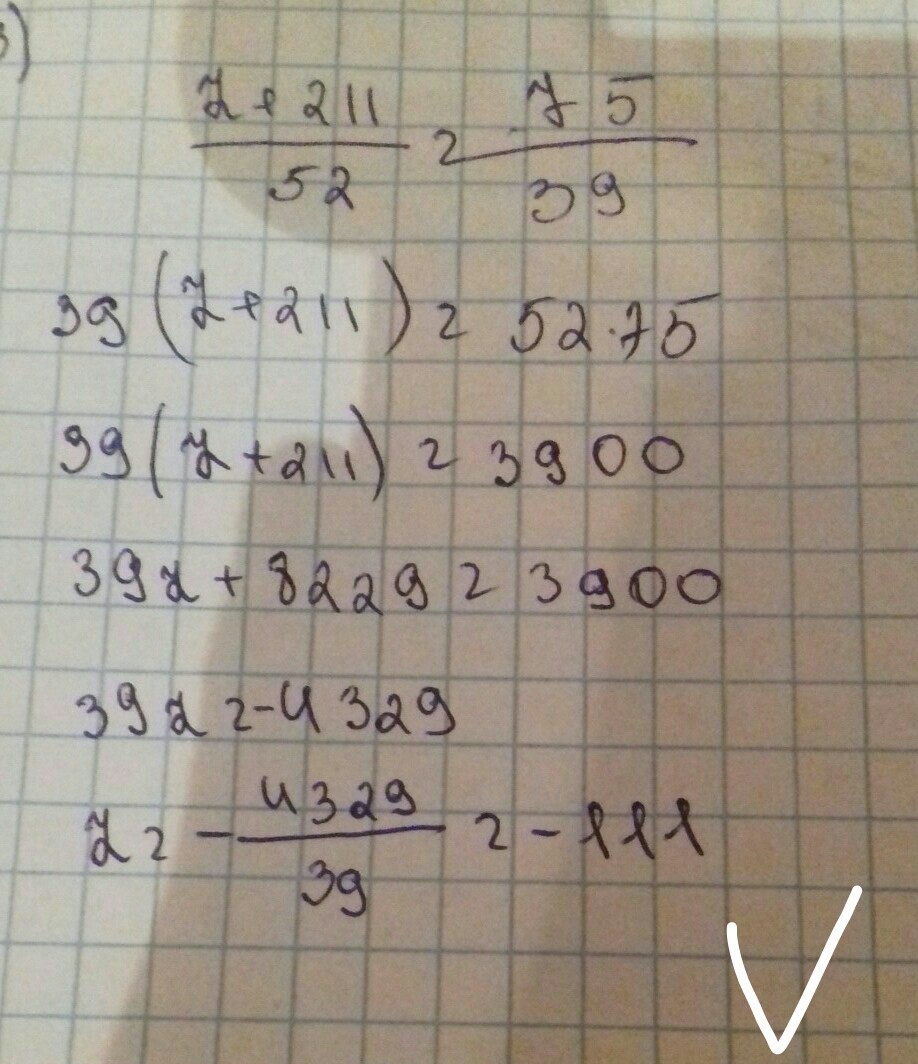 3)
z + 211 / 52 = 75 / 39
39 (z + 211) = 52 · 75
39 (z + 211) = 3900
39z + 8229 = 3900
39z = -4329
z = - 4329 / 39 = - 111